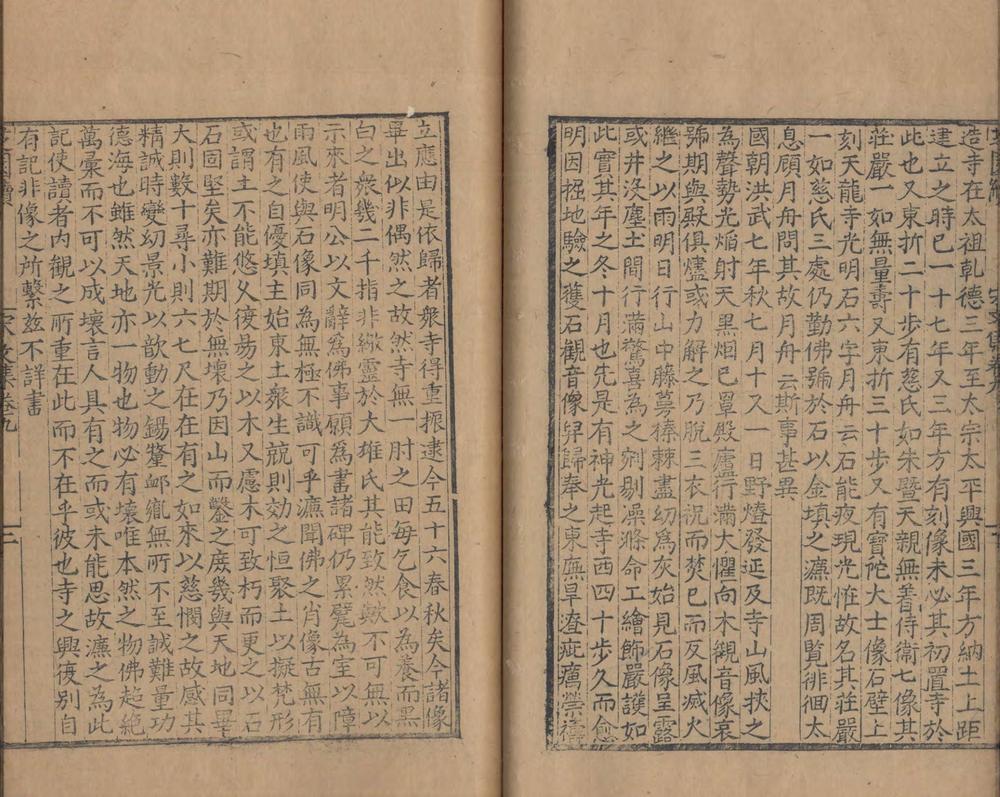 造寺在太祖乹德三年至太宗太平興國三年方納土上距
建立之時已一十七年又三年方有刻像未必其初置寺於
此也又東折二十步有慈氏如朱暨天親無著侍衛七像其
莊嚴一如無量壽又東折三十步又有寶陀大士像石壁上
刻天龍寺光明石六字月舟云石能夜現光恠故名其莊嚴
一如慈氏三處仍勤佛號於石以金填之濂既周覧徘徊太
息顧月舟問其故月舟云斯事甚異
國朝洪武七年秋七月十又一日野燒發延及寺山風挾之
為聲勢光焰射天黑烟已罩殿廬行滿大懼向木觀音像哀
號期與殿俱燼或力解之乃脫三衣祝而焚已而反風滅火
繼之以雨明日行山中藤蔓榛棘盡幻為灰始見石像呈露
或井沒塵土間行滿驚喜為之剜剔澡滌命工繪飾嚴護如
此實其年之冬十月也先是有神光起寺西四十歩久而愈
明因掘地驗之獲石觀音像舁歸奉之東廡旱澇疵癘禜禱
立應由是依歸者衆寺得重振逮今五十六春秋矣今諸像
畢出似非偶然之故然寺無一肘之田每乞食以為養而黑
白之衆幾二千指非徼靈於大雄氏其能致然歟不可無以
示來者明公以文辭爲佛事願爲書諸碑仍累甓為室以障
雨風使與石像同為無極不識可乎濂聞佛之肖像古無有
也有之自優填主始東土衆生競則効之恒聚土以擬梵形
或謂土不能悠乆復易之以木又慮木可致朽而更之以石
石固堅矣亦難期於無壞乃因山而鑿之庶幾與天地同畢
大則數十尋小則六七尺在在有之如來以慈憫之故感其
精誠時變幻景光以歆動之錫釐邮癃無所不至誠難量功
德海也雖然天地亦一物也物必有壞唯本然之物佛超絶
萬彙而不可以成壞言人具有之而或未能思故濂之為此
記使讀者内觀之所重在此而不在乎彼也寺之興復别自
有記非像之所繫兹不詳書